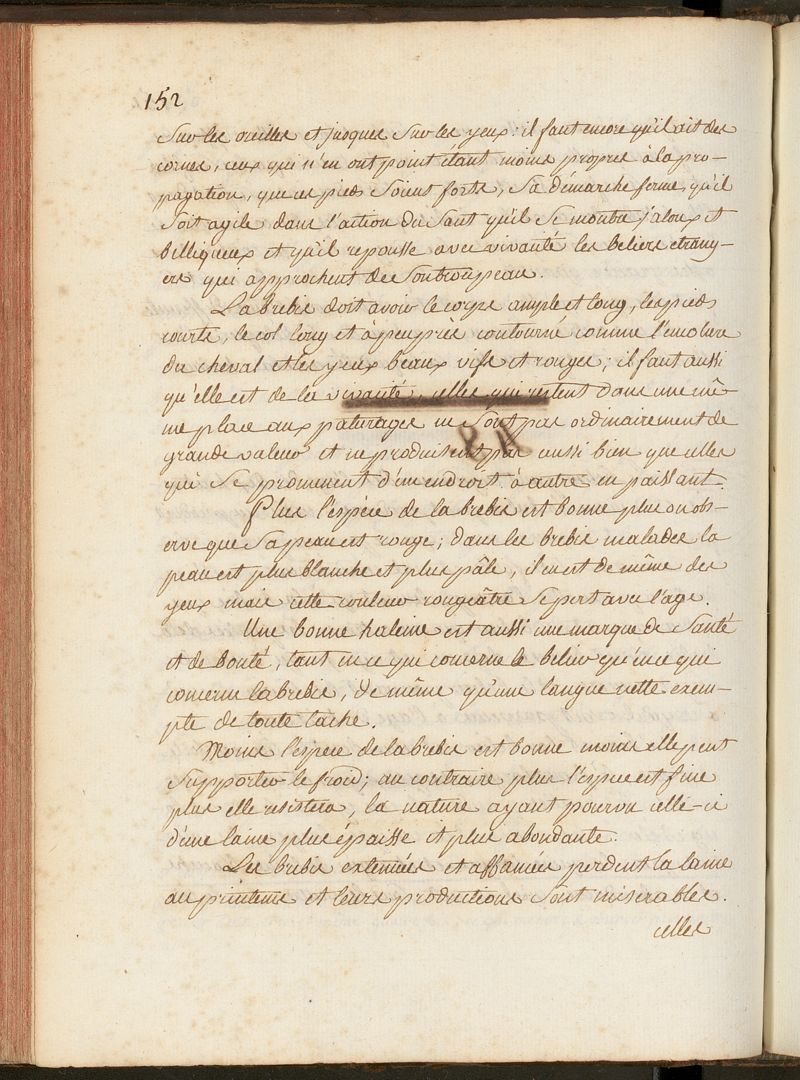 152
sur les oreilles et jusques sur les yeux : il faut encore qu'il ait des
cornes, ceux qui n'en ont point etant moins propres à la pro-
pagation, que ces pieds soient forts, sa démarche ferme, qu'il
soit agile dans l'action du saut qu'il se montre jaloux et
billiqueux et qu'il repousse avec vivauté les beliers etrang-
ers qui approchent de son troupeau.
La brebis doit avoir le corps ample et long, les pieds
courts, le col long et à peu près contourné comme l'encolure
du cheval et les yeux beaux vifs et rouges ; il faut aussi
qu'elle ait de la vivauté, celles qui restent dans une mê-
me place aux paturages ne sont pas ordinairement de
grande valeur et ne produisent pas aussi bien que celles
qui se promenent d'un endroit à autre en paissant.
Plus l'espéce de la brebis est bonne plus on obs-
erve que sa peau est rouge ; dans les brebis malades la
peau est plus blanche et plus pâle, il en est de même des
yeux mais cette couleur rougeâtre se pert avec l'age.
Une bonne haleine est aussi une marque de santé
et de bonté, tant en ce qui concerne le belier qu'en ce qui
concerne la brebis, de même qu'une langue nette exem-
pte de toute tache.
Moins l'espece de la brebis est bonne moins elle peut
supporter le froid ; au contraire plus l'espece est fine
plus elle resistera, la nature ayant pourvu celle-ci
d'une laine plus épaisse et plus abondante.
Les brebis extenuées et affamées perdent la laine
au printems et leurs productions sont miserables.
celles